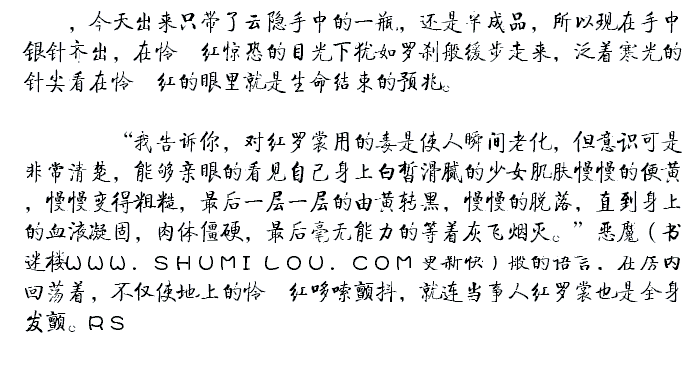 ，今天出来只带了云隐手中的一瓶，还是半成品，所以现在手中
银针齐出，在怜 红惊恐的目光下犹如罗刹般缓步走来，泛着寒光的
针尖看在怜 红的眼里就是生命结束的预兆。
“我告诉你，对红罗裳用的毒是使人瞬间老化，但意识可是
非常清楚，能够亲眼的看见自己身上白皙滑腻的少女肌肤慢慢的便黄
，慢慢变得粗糙，最后一层一层的由黄转黑，慢慢的脱落，直到身上
的血液凝固，肉体僵硬，最后毫无能力的等着灰飞烟灭。”恶魔（书
迷楼ＷＷＷ．ＳＨＵＭＩＬＯＵ．ＣＯＭ更新快）般的语言．在房内
回荡着，不仅使地上的怜 红哆嗦颤抖，就连当事人红罗裳也是全身
发颤。ＲＳ